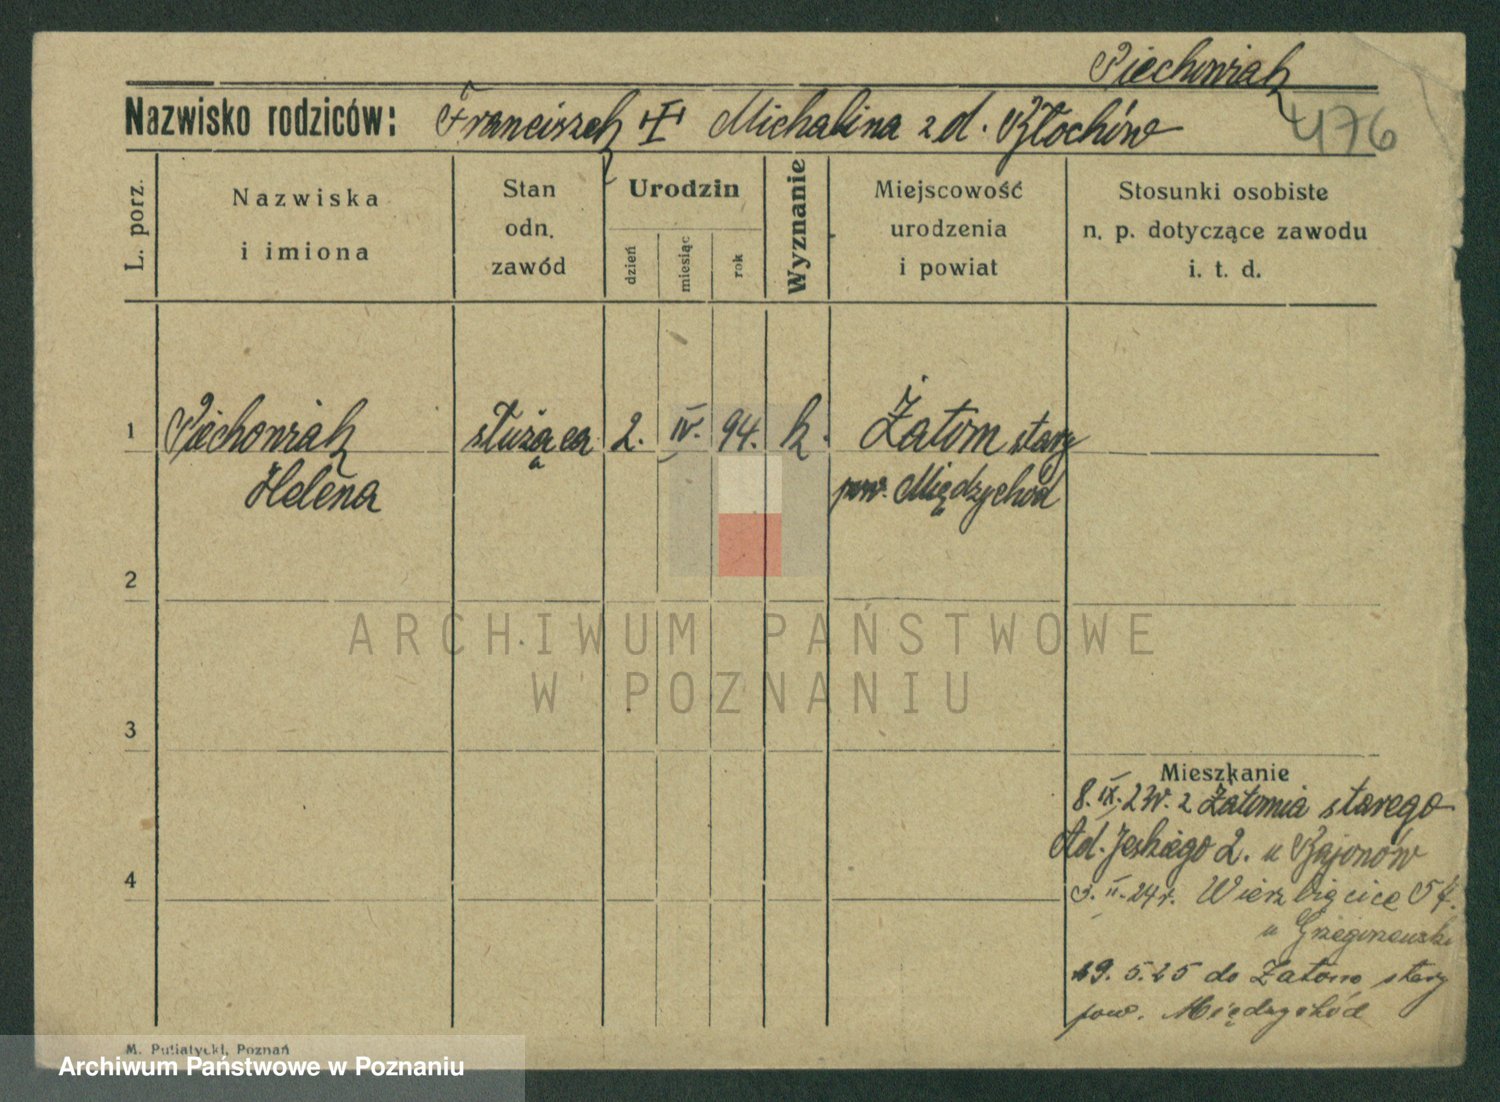 Piechowiak
Nazwisko rodziców: Franciszek Michalina z d. Kłochów
476
L. porz.
Nazwiska
i imiona
Stan
odn.
zawód
Urodzin
dzień
miesiąc
rok
Wyznanie
Miejscowość
urodzenia
i powiat
Stosunki osobiste
n. p. dotyczące zawodu
i. t. d.
1 Piechowiak służąca 2. IV. 94. k. Żatom stary
Helena pow. Międzychód
2
ARCHIWUM PAŃSTWOWE
W POZNANIU
3
Mieszkanie
8. IX. 23r. z Żatomia starego
Ad. Jeskiego 2. u Bajonów
4
3. II. 24r. Wierzbięcice 54.
u
19. 5. 25 do Żatom stary
pow. Międzychód
M. Putiatycki, Poznań
Archiwum Państwowe w Poznaniu